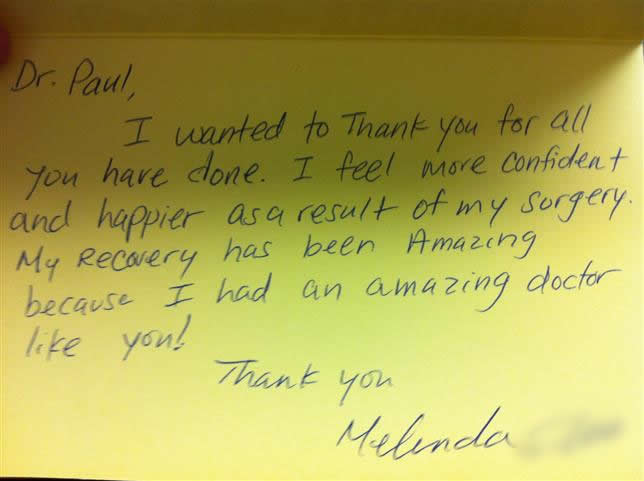 Dr. Paul,
I wanted to Thank you for all
you have done. I feel more confident
and happier as a result of my surgery.
My Recovery has been Amazing
because I had an amazing doctor
like you!
Thank you
Melinda